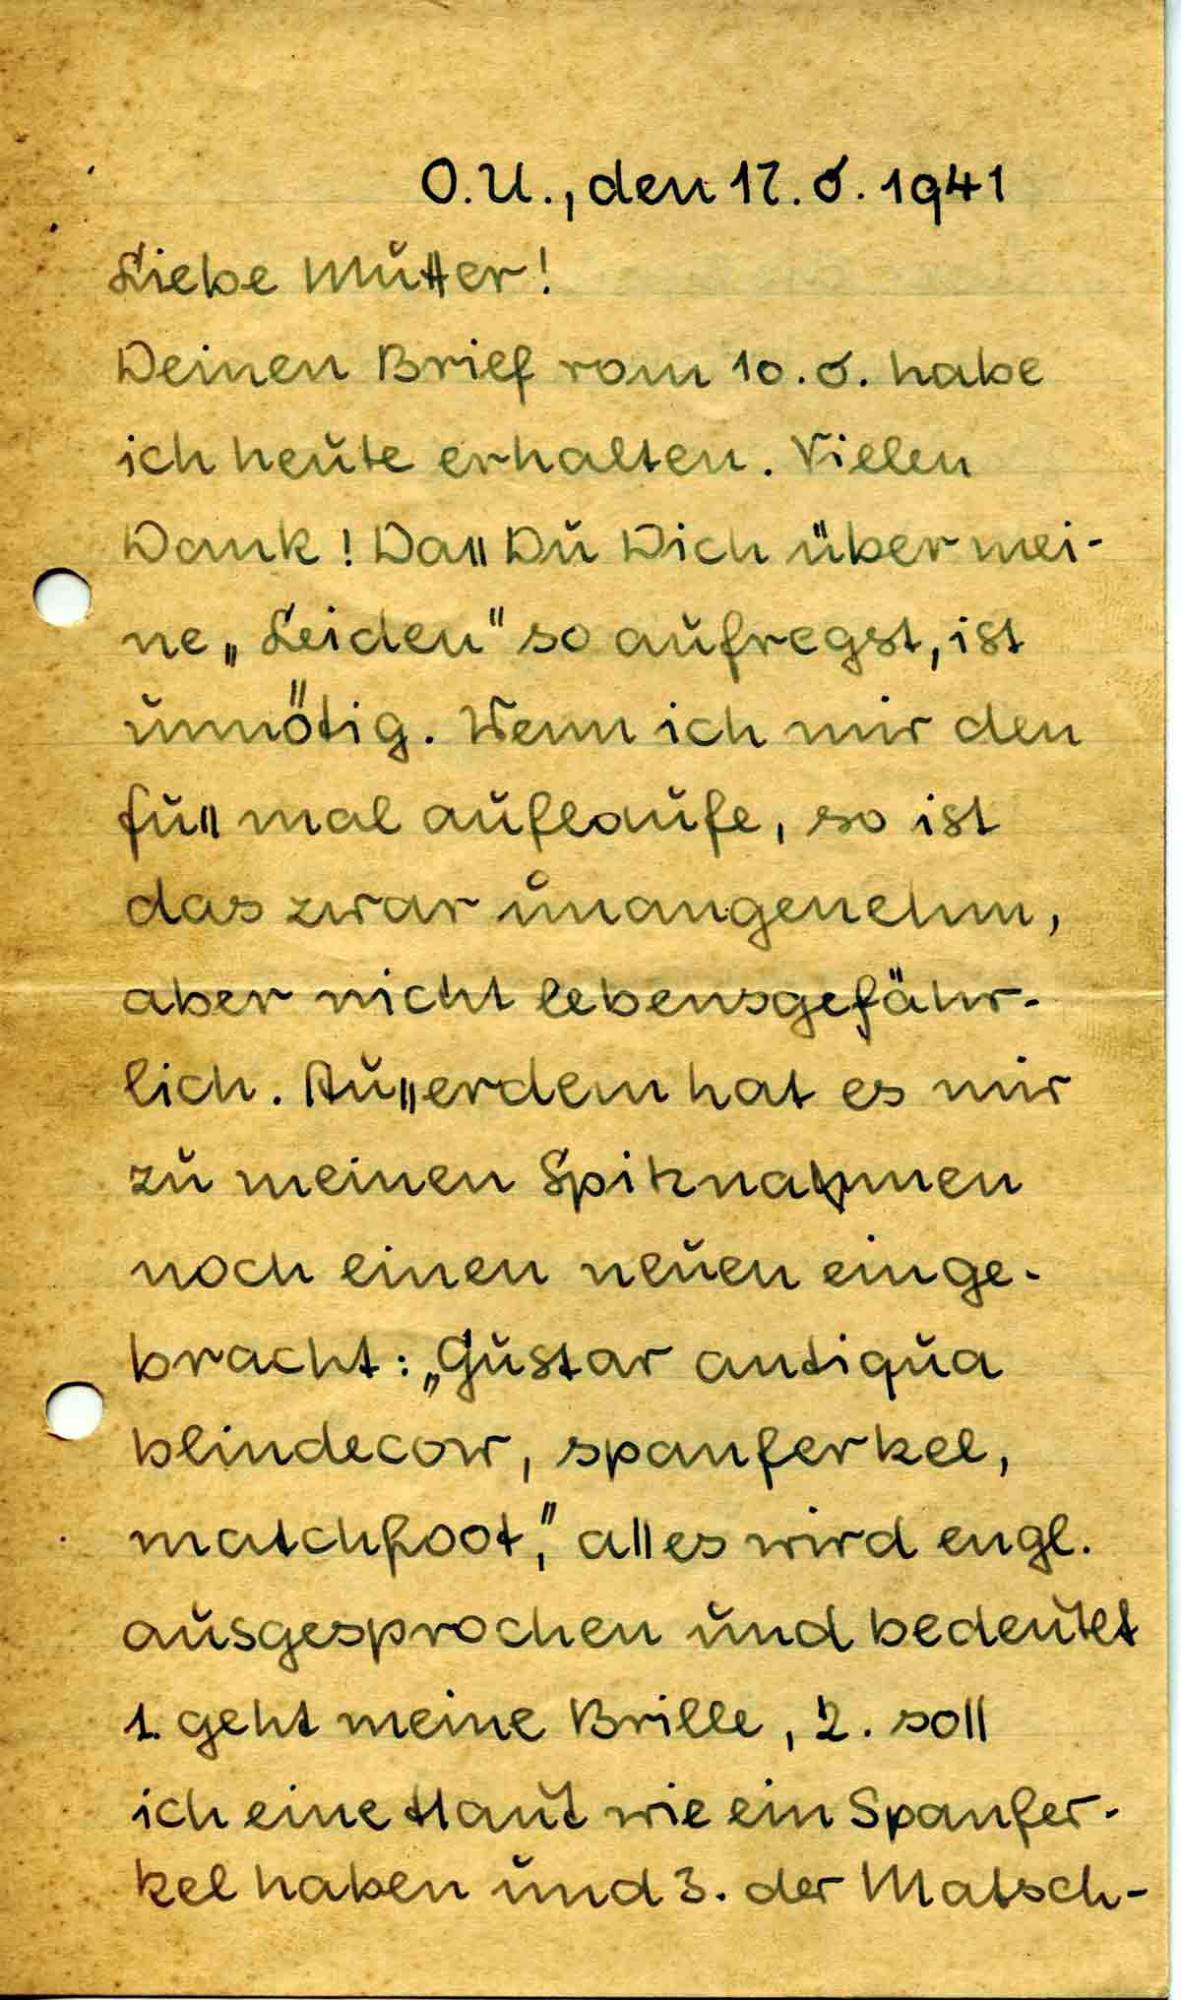 O.U., den 17.6.1941
Liebe Mutter!
Deinen Brief vom 10.6. habe
ich heute erhalten. Vielen
Dank! Daß Du Dich über mei-
ne „Leiden" so aufregst, ist
unnötig. Wenn ich mir den
fuß mal auflaufe, so ist
das zwar unangenehm,
aber nicht lebensgefähr-
lich. Außerdem hat es mir
zu meinen Spitznamen
noch einen neuen einge-
bracht: „Gustav antiqua
blindecow, spanferkel,
matchfoot," alles wird engl.
ausgesprochen und bedeutet
1. geht meine Brille, 2. soll
ich eine Haut wie ein Spanfer-
kel haben und 3. der Matsch-